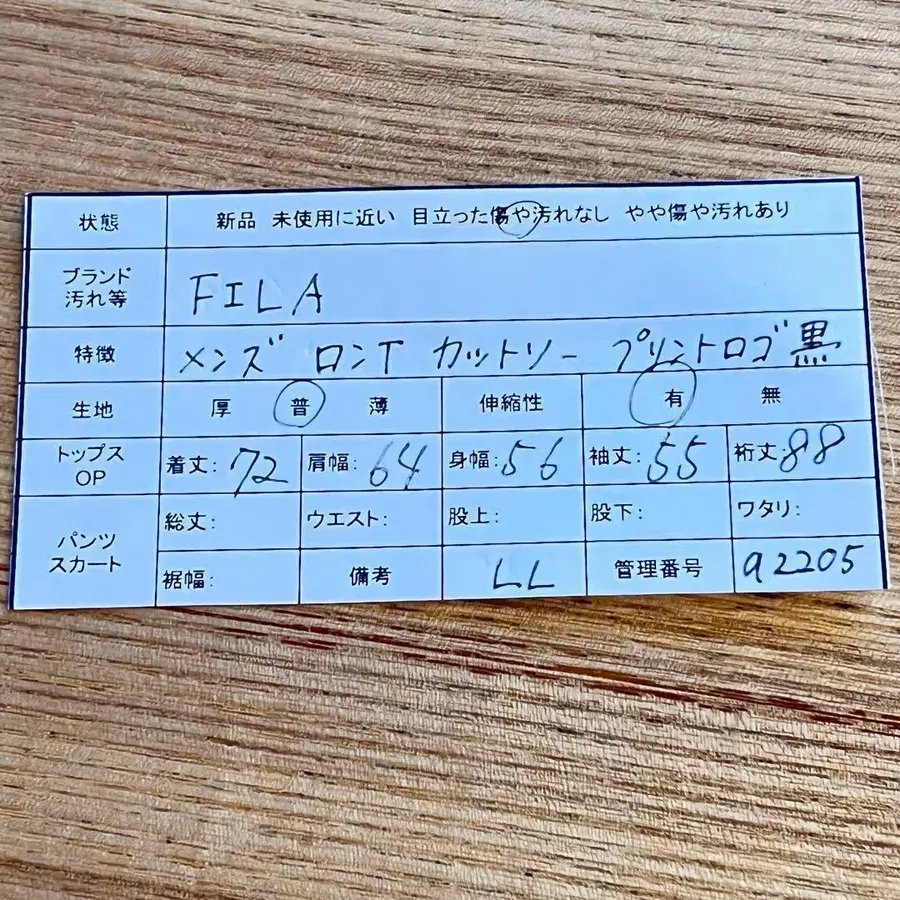 状態 新品 未使用に近い 目立った傷や汚れなし やや傷や汚れあり
ブランド
汚れ等 FILA
特徴 メンズ ロンT カットソー プリントロゴ 黒
生地 厚 普 薄 伸縮性 有 無
トップス
OP 着丈: 72 肩幅: 64 身幅: 56 袖丈: 55 裄丈: 88
パンツ
スカート 総丈: ウエスト: 股上: 股下: ワタリ:
裾幅: 備考 LL 管理番号 a2205